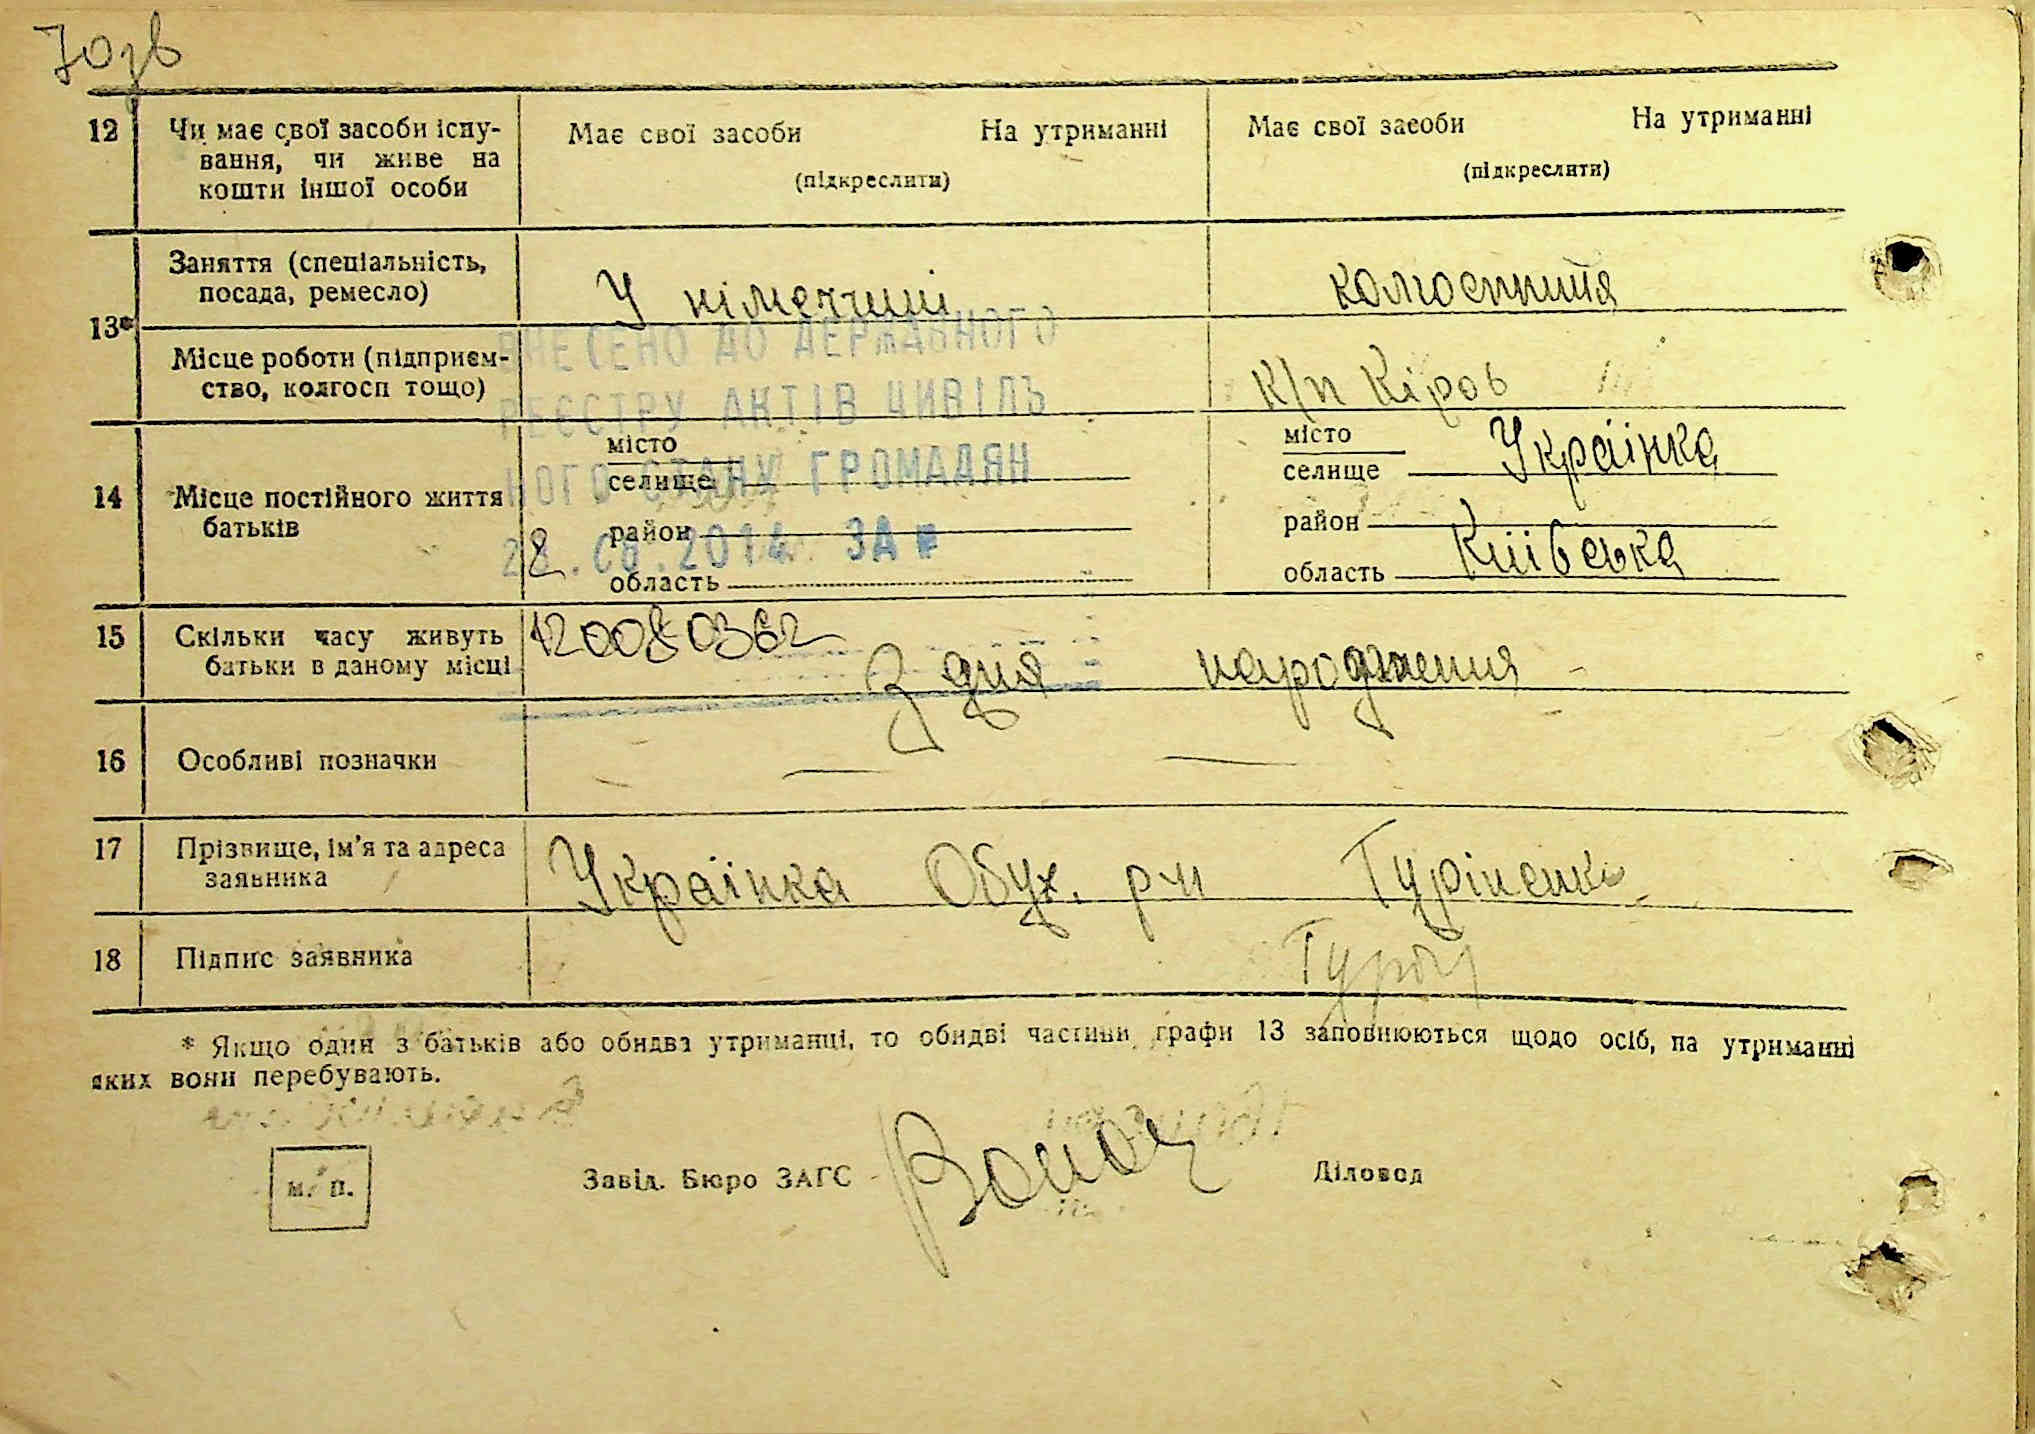 70зв
12 Чи має свої засоби існу-
вання, чи живе на
кошти іншої особи
Має свої засоби На утриманні
(підкреслити)
Має свої засоби На утриманні
(підкреслити)
13*
Заняття (спеціальність,
посада, ремесло)
У німеччині
колгоспниця
Місце роботи (підприєм-
ство, колгосп тощо)
к/п Кіров
ВНЕСЕНО ДО ДЕРЖАВНОГО
РЕЄСТРУ АКТІВ ЦИВІЛЬ
НОГО СТАНУ ГРОМАДЯН
2014 ЗА №
120080362
14 Місце постійного життя
батьків
місто
селище
район
область
місто
селище Українка
район
область Київська
15 Скільки часу живуть
батьки в даному місці
З дня народження
16 Особливі позначки
17 Прізвище, ім'я та адреса
заявника
Українка Обух. р-н
18 Підпис заявника
* Якщо один з батьків або обидва утриманці, то обидві частини графи 13 заповнюються щодо осіб, на утриманні
яких вони перебувають.
м. п.
Завід. Бюро ЗАГС
Діловод